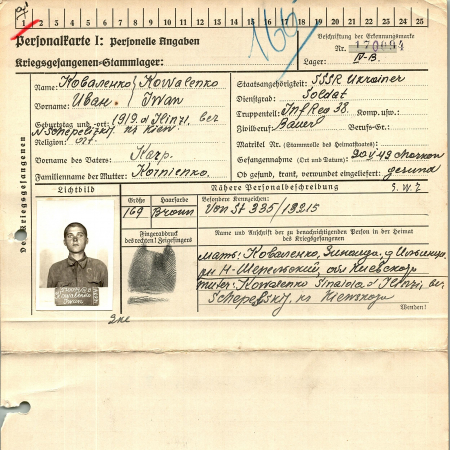 1 2 3 4 5 6 7 8 9 10 11 12 13 14 15 16 17 18 19 20 21 22 23 24 25
Personalkarte I: Personelle Angaben
Kriegsgefangenen-Stammlager:
Beschriftung der Erkennungsmarke
Nr. 170094
Lager: IV-B.
Des Kriegsgefangenen
Name: Коваленко Kowalenko
Vorname: Иван. Iwan
Geburtstag und -ort: 1919. d. Ilnzi, bez
kr Kiew
Religion: ort.
Vorname des Vaters: Karp.
Familienname der Mutter: Kornienko.
Staatsangehörigkeit: SSSR Ukrainer
Dienstgrad: Soldat
Truppenteil: Inf Reg 38. Komp. usw.:
Zivilberuf: Bauer Berufs-Gr.:
Matrikel Nr. (Stammrolle des Heimatstaates):
Gefangennahme (Ort und Datum): 20 V 42 Charkow
Ob gesund, krank, verwundet eingeliefert: gesund
Lichtbild
Nähere Personalbeschreibung
Größe Haarfarbe Besondere Kennzeichen:
169 Braun Von St 335/13215
Fingerabdruck
des rechten! Zeigefingers
Name und Anschrift der zu benachrichtigenden Person in der Heimat
des Kriegsgefangenen
мать: Коваленко, Зинаида, д Ильинцы,
рн Н-Шепельский, обл Киевская
Muter: Kowalenko Sinaida d Ilnzi, bez
kr Kiewskaja
Kowalenko
Iwan
Wenden!